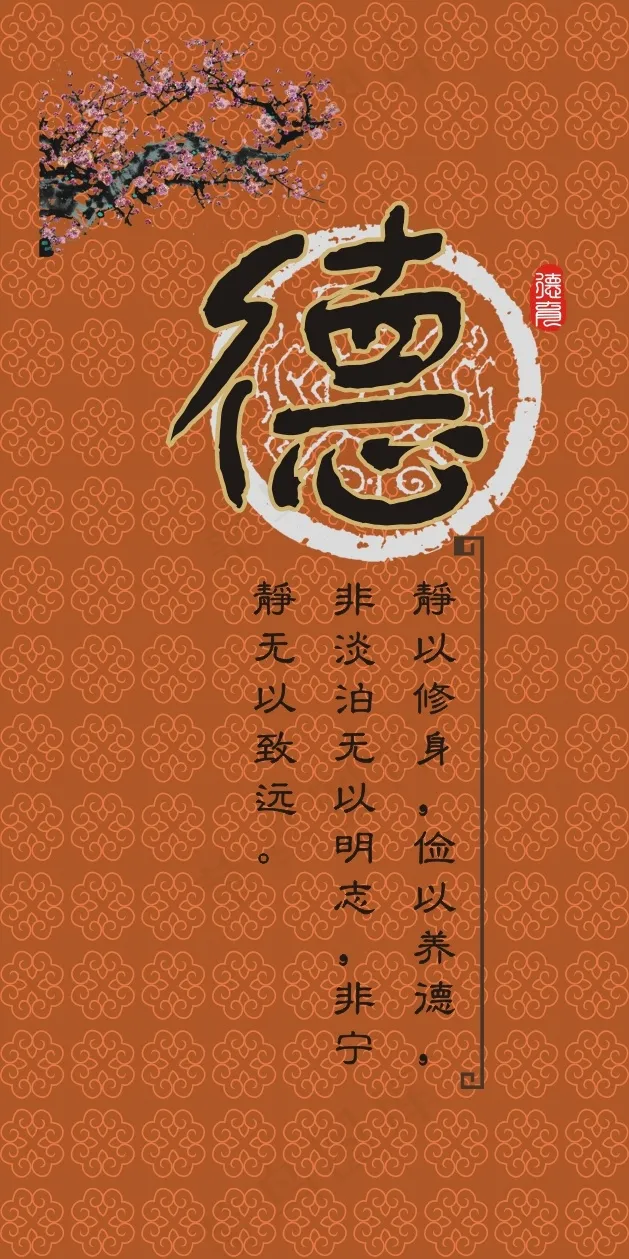 德
德育
靜以修身，俭以养德，
非淡泊无以明志，非宁
靜无以致远。